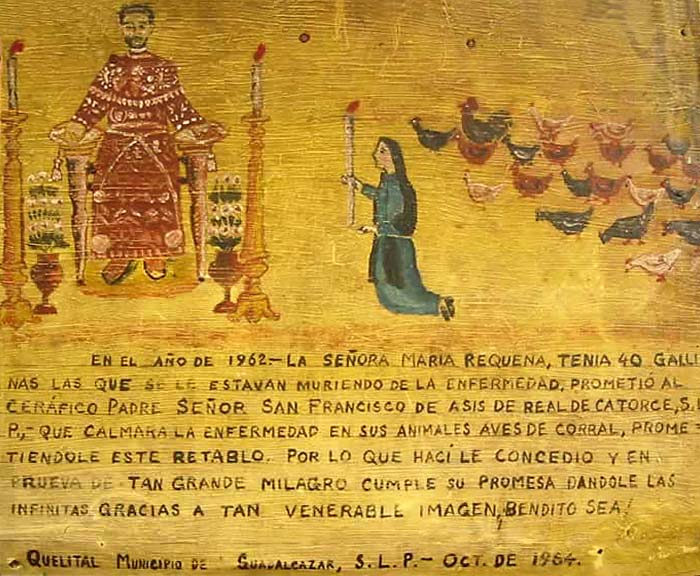 EN EL AÑO DE 1962.- LA SEÑORA MARIA REQUENA, TENIA 40 GALLI
NAS LAS QUE SE LE ESTAVAN MURIENDO DE LA ENFERMEDAD, PROMETIÓ AL
CERÁFICO PADRE SEÑOR SAN FRANCISCO DE ASIS DE REAL DE CATORCE, S.L
P,- QUE CALMARA LA ENFERMEDAD EN SUS ANIMALES AVES DE CORRAL, PROME=
TIENDOLE ESTE RETABLO. POR LO QUE HACÍ LE CONCEDIO Y EN
PRUEVA DE TAN GRANDE MILAGRO CUMPLE SU PROMESA DANDOLE LAS
INFINITAS GRACIAS A TAN VENERABLE IMAGEN, BENDITO SEA!
QUELITAL MUNICIPIO DE GUADALCAZAR, S.L.P.- OCT. DE 1964.